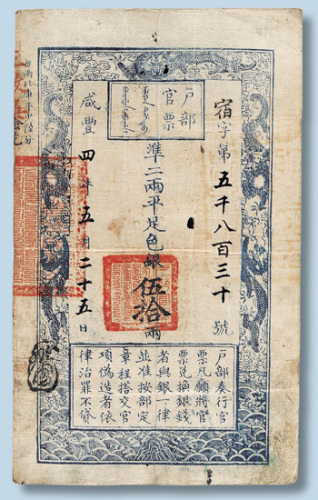 户部
官票
宿字第五千八百三十號
準二兩平足色銀伍拾兩
咸豐四年五月二十五日
户部奏行官
票凡願將官
票兑換銀錢
者與銀一律
並准按部定
章程搭交官
項偽造者依
律治罪不貸